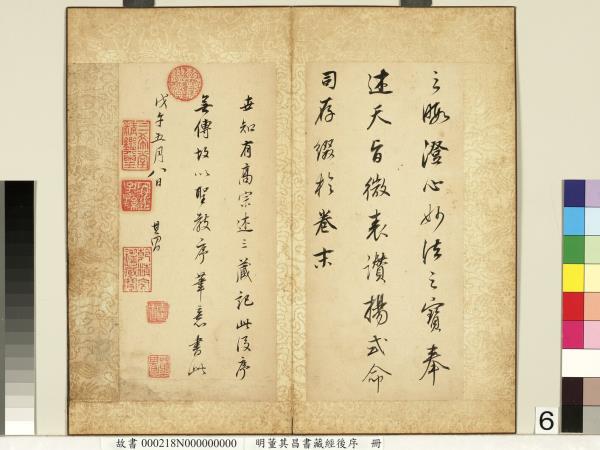 之暇澄心妙法之寶奉
述天旨微表讚揚式命
司存綴於卷末
世知有高宗述三藏記此後序
無傳故以聖教序筆意書此
戊午五月八日 其昌
6
故書 000218N000000000 明董其昌書藏經後序 冊